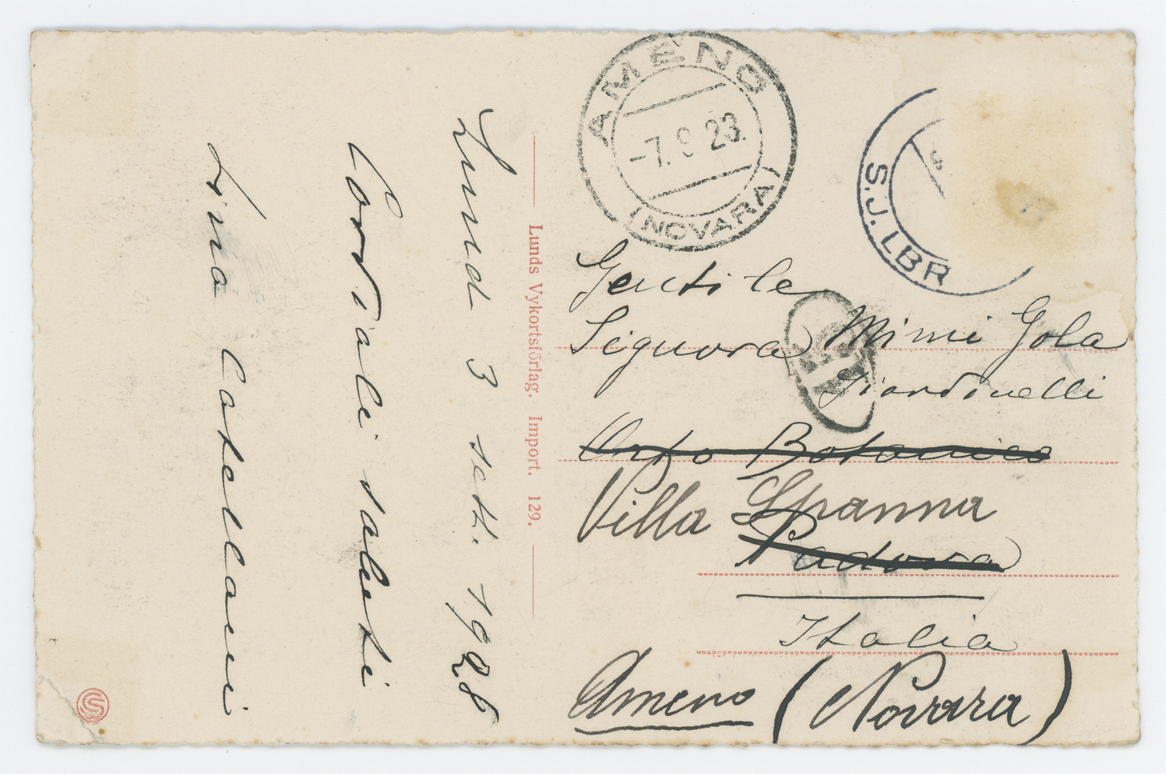 Lund 3 sett. 1928
Cordiali saluti
Lina Catellani
Lunds Vykortsförlag. Import. 129.
AMENO
-7.9 23.
(NOVARA)
S.J.LBR
Gentile
Signora Mimi Gola
Giardinelli
Orto Botanico
Villa Spanna
Padova
Italia
Ameno (Novara)